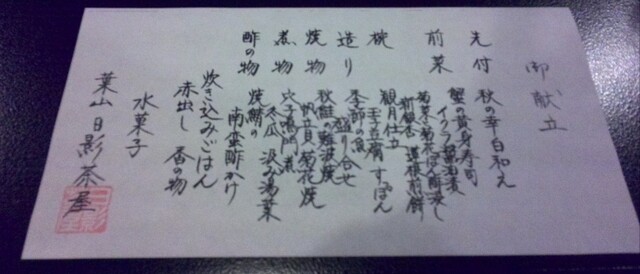 御献立
先付 秋の幸白和え
前菜 蟹の黄身寿司
イクラ醤油漬
菊菜と菊花ぽん酢浸し
新銀杏 蓮根煎餅
椀 観月仕立
玉子豆腐 すっぽん
造り 季節の魚
盛り合せ
焼物 秋鮭の難波焼
帆立貝菊花焼
煮物 穴子鳴門煮
冬瓜 汲み湯葉
酢の物 焼鯖の
南蛮酢かけ
炊き込みごはん
赤出し 香の物
水菓子
葉山日影茶屋